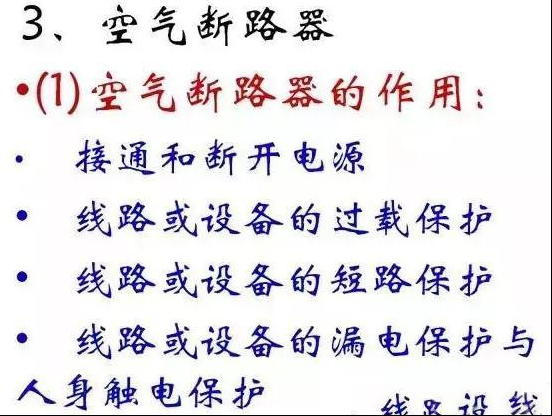 3、空气断路器
•(1)空气断路器的作用：
• 接通和断开电源
• 线路或设备的过载保护
• 线路或设备的短路保护
• 线路或设备的漏电保护与
人身触电保护